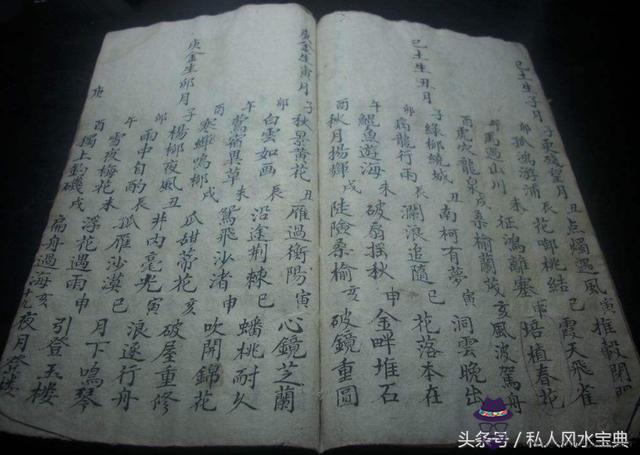 己土生子月 子更残望月 丑点燭遇風 寅推轂開門
卯孤鴻游浦 辰花啣桃結 巳霞天飛雀
午馬過山川 未征鴻離塞 申培植春花
酉虎吹龍泉 戌桑榆蘭茂 亥風波駕舟
己土生丑月 子綠柳繞城 丑南柯有夢 寅洞雲晚出
卯病龍行雨 辰瀾浪追隨 巳花落本在
午鯉魚遊海 未破扇摇秋 申金畔堆石
酉秋月揚輝 戌陡險桑榆 亥破鏡重圓
庚金生寅月 子秋景黄花 丑雁過衡陽 寅心鏡芝蘭
卯白雲如画 辰沿途荆棘 巳蟠桃耐久
午鶯術異草 未鴛飛沙渚 申吹開錦花
酉寒蟬鳴柳 戌瓜甜蒂花 亥破屋重修
庚金生卯月 子楊柳夜風 丑井内毫光 寅浪逐行舟
卯雨中自酌 辰孤雁沙漠 巳月下鳴琴
午雪夜梅花 未浮花遇雨 申引登玉樓
酉獨上釣磯 戌扁舟過海 亥夜月登樓
庚
头条号 / 私人风水宝典